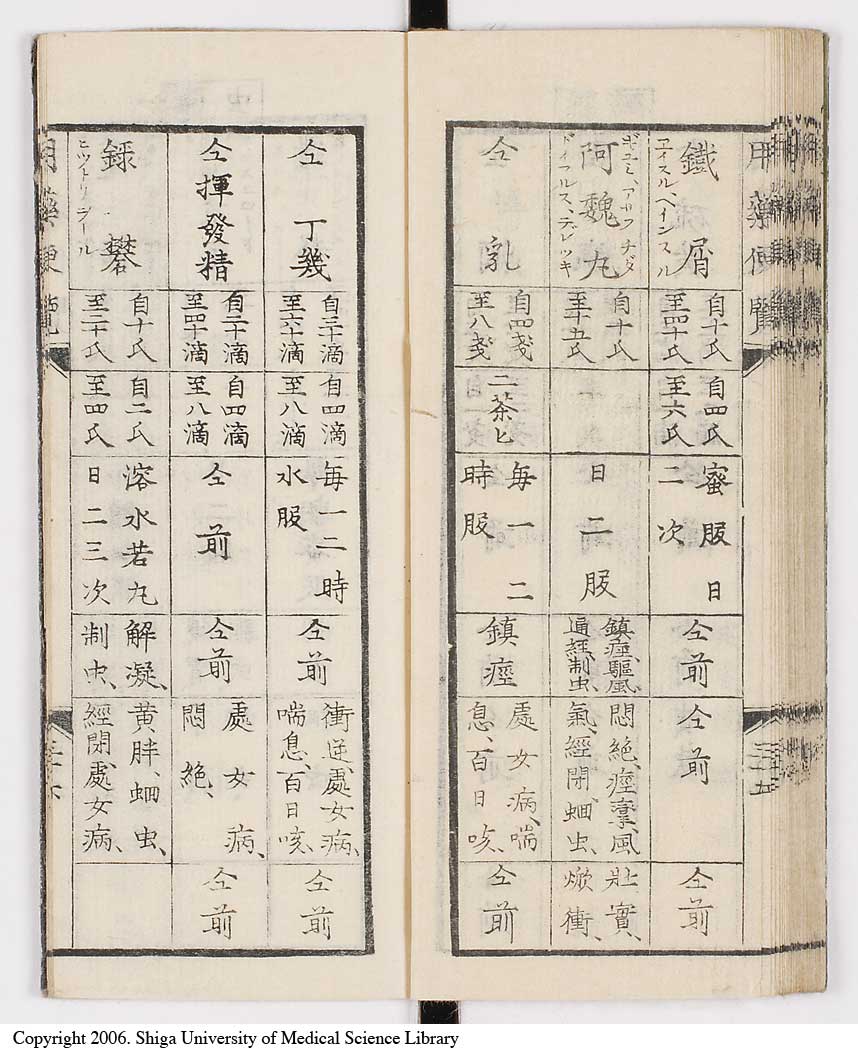 用藥便覽
三十五
ヱイスル、ヘインスル
鐵屑
自十氏
至四十氏
自四氏
至六氏
蜜服日
二次
仝前
仝前
仝前
阿魏丸
自十氏
至十五氏
日二服
鎮痙、驅風、
通經、制虫、
悶絶、痙攣、風
氣、經閉、蛔虫、
壯實、
焮衝、
仝乳
自四戔
至八戔
二茶匕
每一二
時服
鎮痙
處女病、喘
息、百日咳、
仝前
仝丁幾
自三十滴
至六十滴
自四滴
至八滴
每一二時
水服
仝前
衝逆、處女病、
喘息、百日咳、
仝前
仝揮發精
自二十滴
至四十滴
自四滴
至八滴
仝前
仝前
處女病、
悶絶、
仝前
綠礬
自十氏
至二十氏
自二氏
至四氏
溶水若丸
日二三次
解凝、
制虫、
黃胖、蛔虫、
經閉、處女病、
用藥便覽
Copyright 2006. Shiga University of Medical Science Library